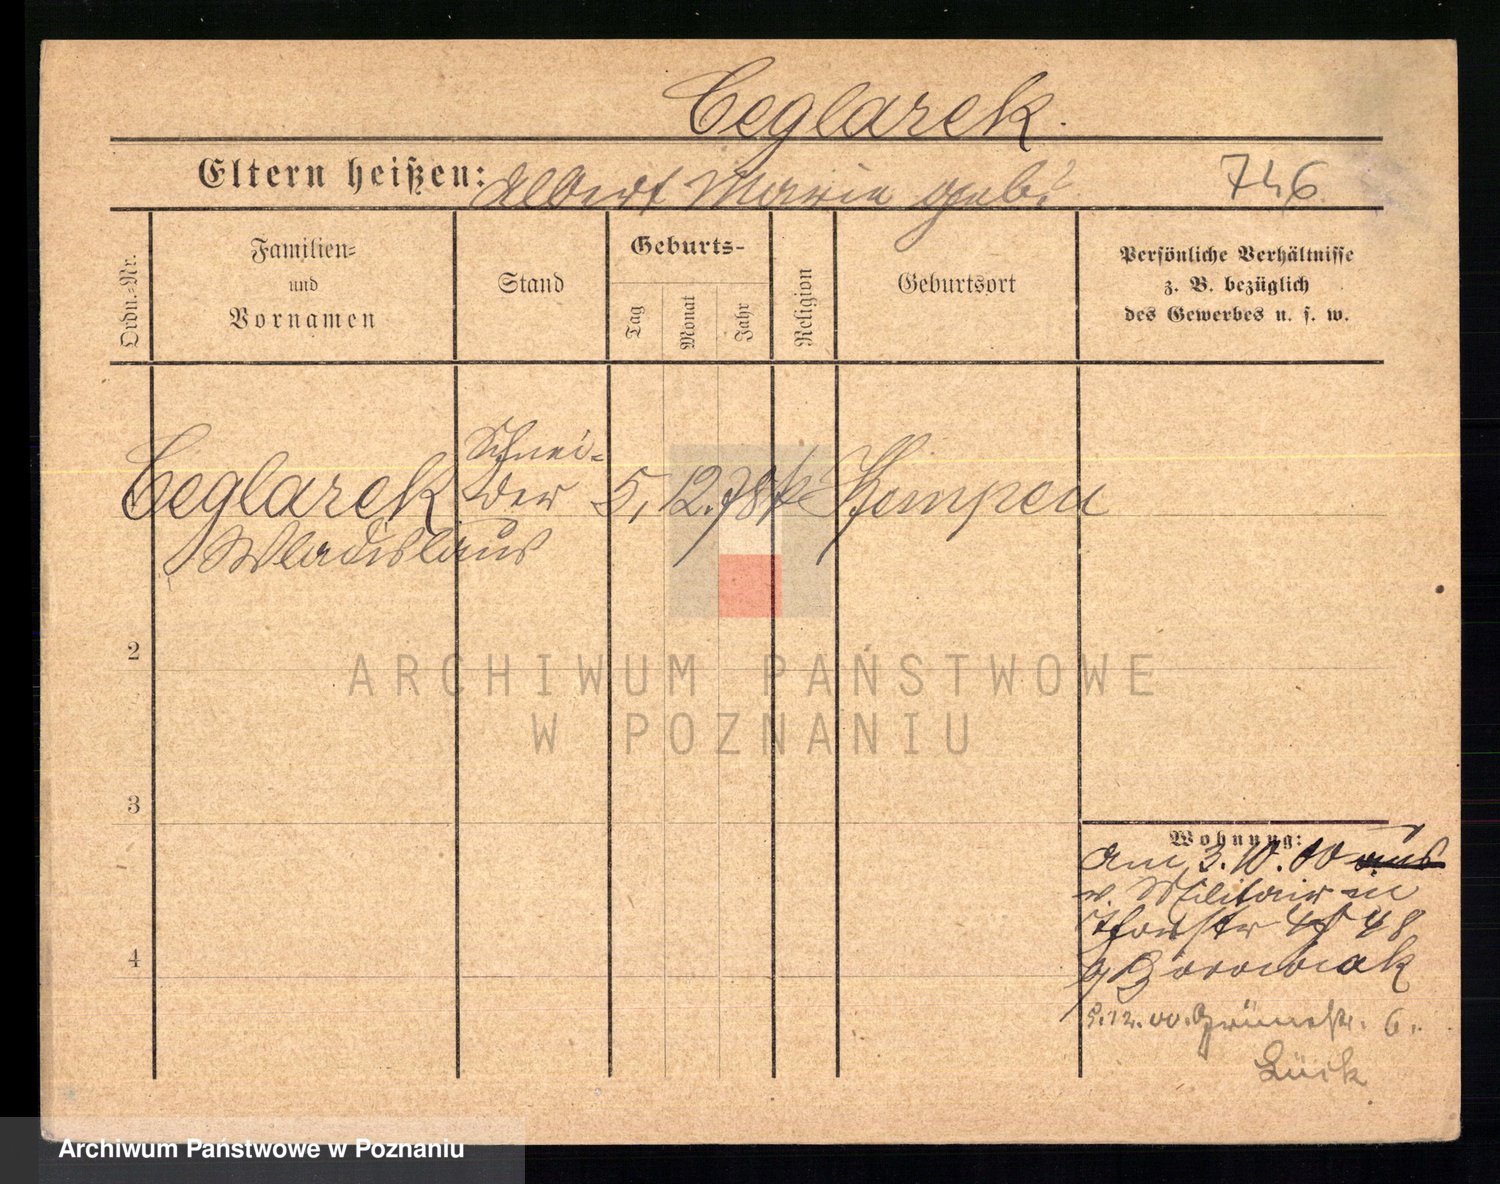 Ceglarek.
Eltern heißen: Albert Marie geb?
746
Ordn.-Nr.
Familien-
und
Vornamen
Stand
Geburts-
Tag
Monat
Jahr
Religion
Geburtsort
Persönliche Verhältnisse
z. B. bezüglich
des Gewerbes u. s. w.
Ceglarek
Wladislaus
Schnei-
der
5. 12. 78 k Kempen
2
3
4
ARCHIWUM PAŃSTWOWE
W POZNANIU
Wohnung:
am 3.10.00 aus
v. Militair in
48
Borowiak
5.12.00. Grünestr. 6.
Lück
Archiwum Państwowe w Poznaniu